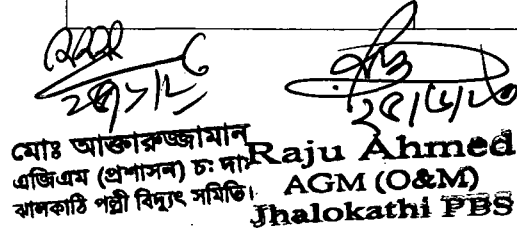 মোঃ আক্তারুজ্জামান
এজিএম (প্রশাসন) চঃ দাঃ
ঝালকাঠি পল্লী বিদ্যুৎ সমিতি।
Raju Ahmed
AGM (O&M)
Jhalokathi PBS